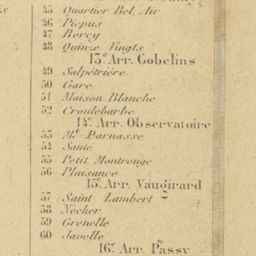 45 Quartier Bel Air
46 Picpus
47 Bercy
48 Quinze Vingts
13e Arr. Gobelins
49 Salpêtrière
50 Gare
51 Maison Blanche
52 Croulebarbe
14e Arr. Observatoire
53 Mt Parnasse
54 Santé
55 Petit Montrouge
56 Plaisance
15e Arr. Vaugirard
57 Saint Lambert
58 Necker
59 Grenelle
60 Javelle
16e Arr. Passy